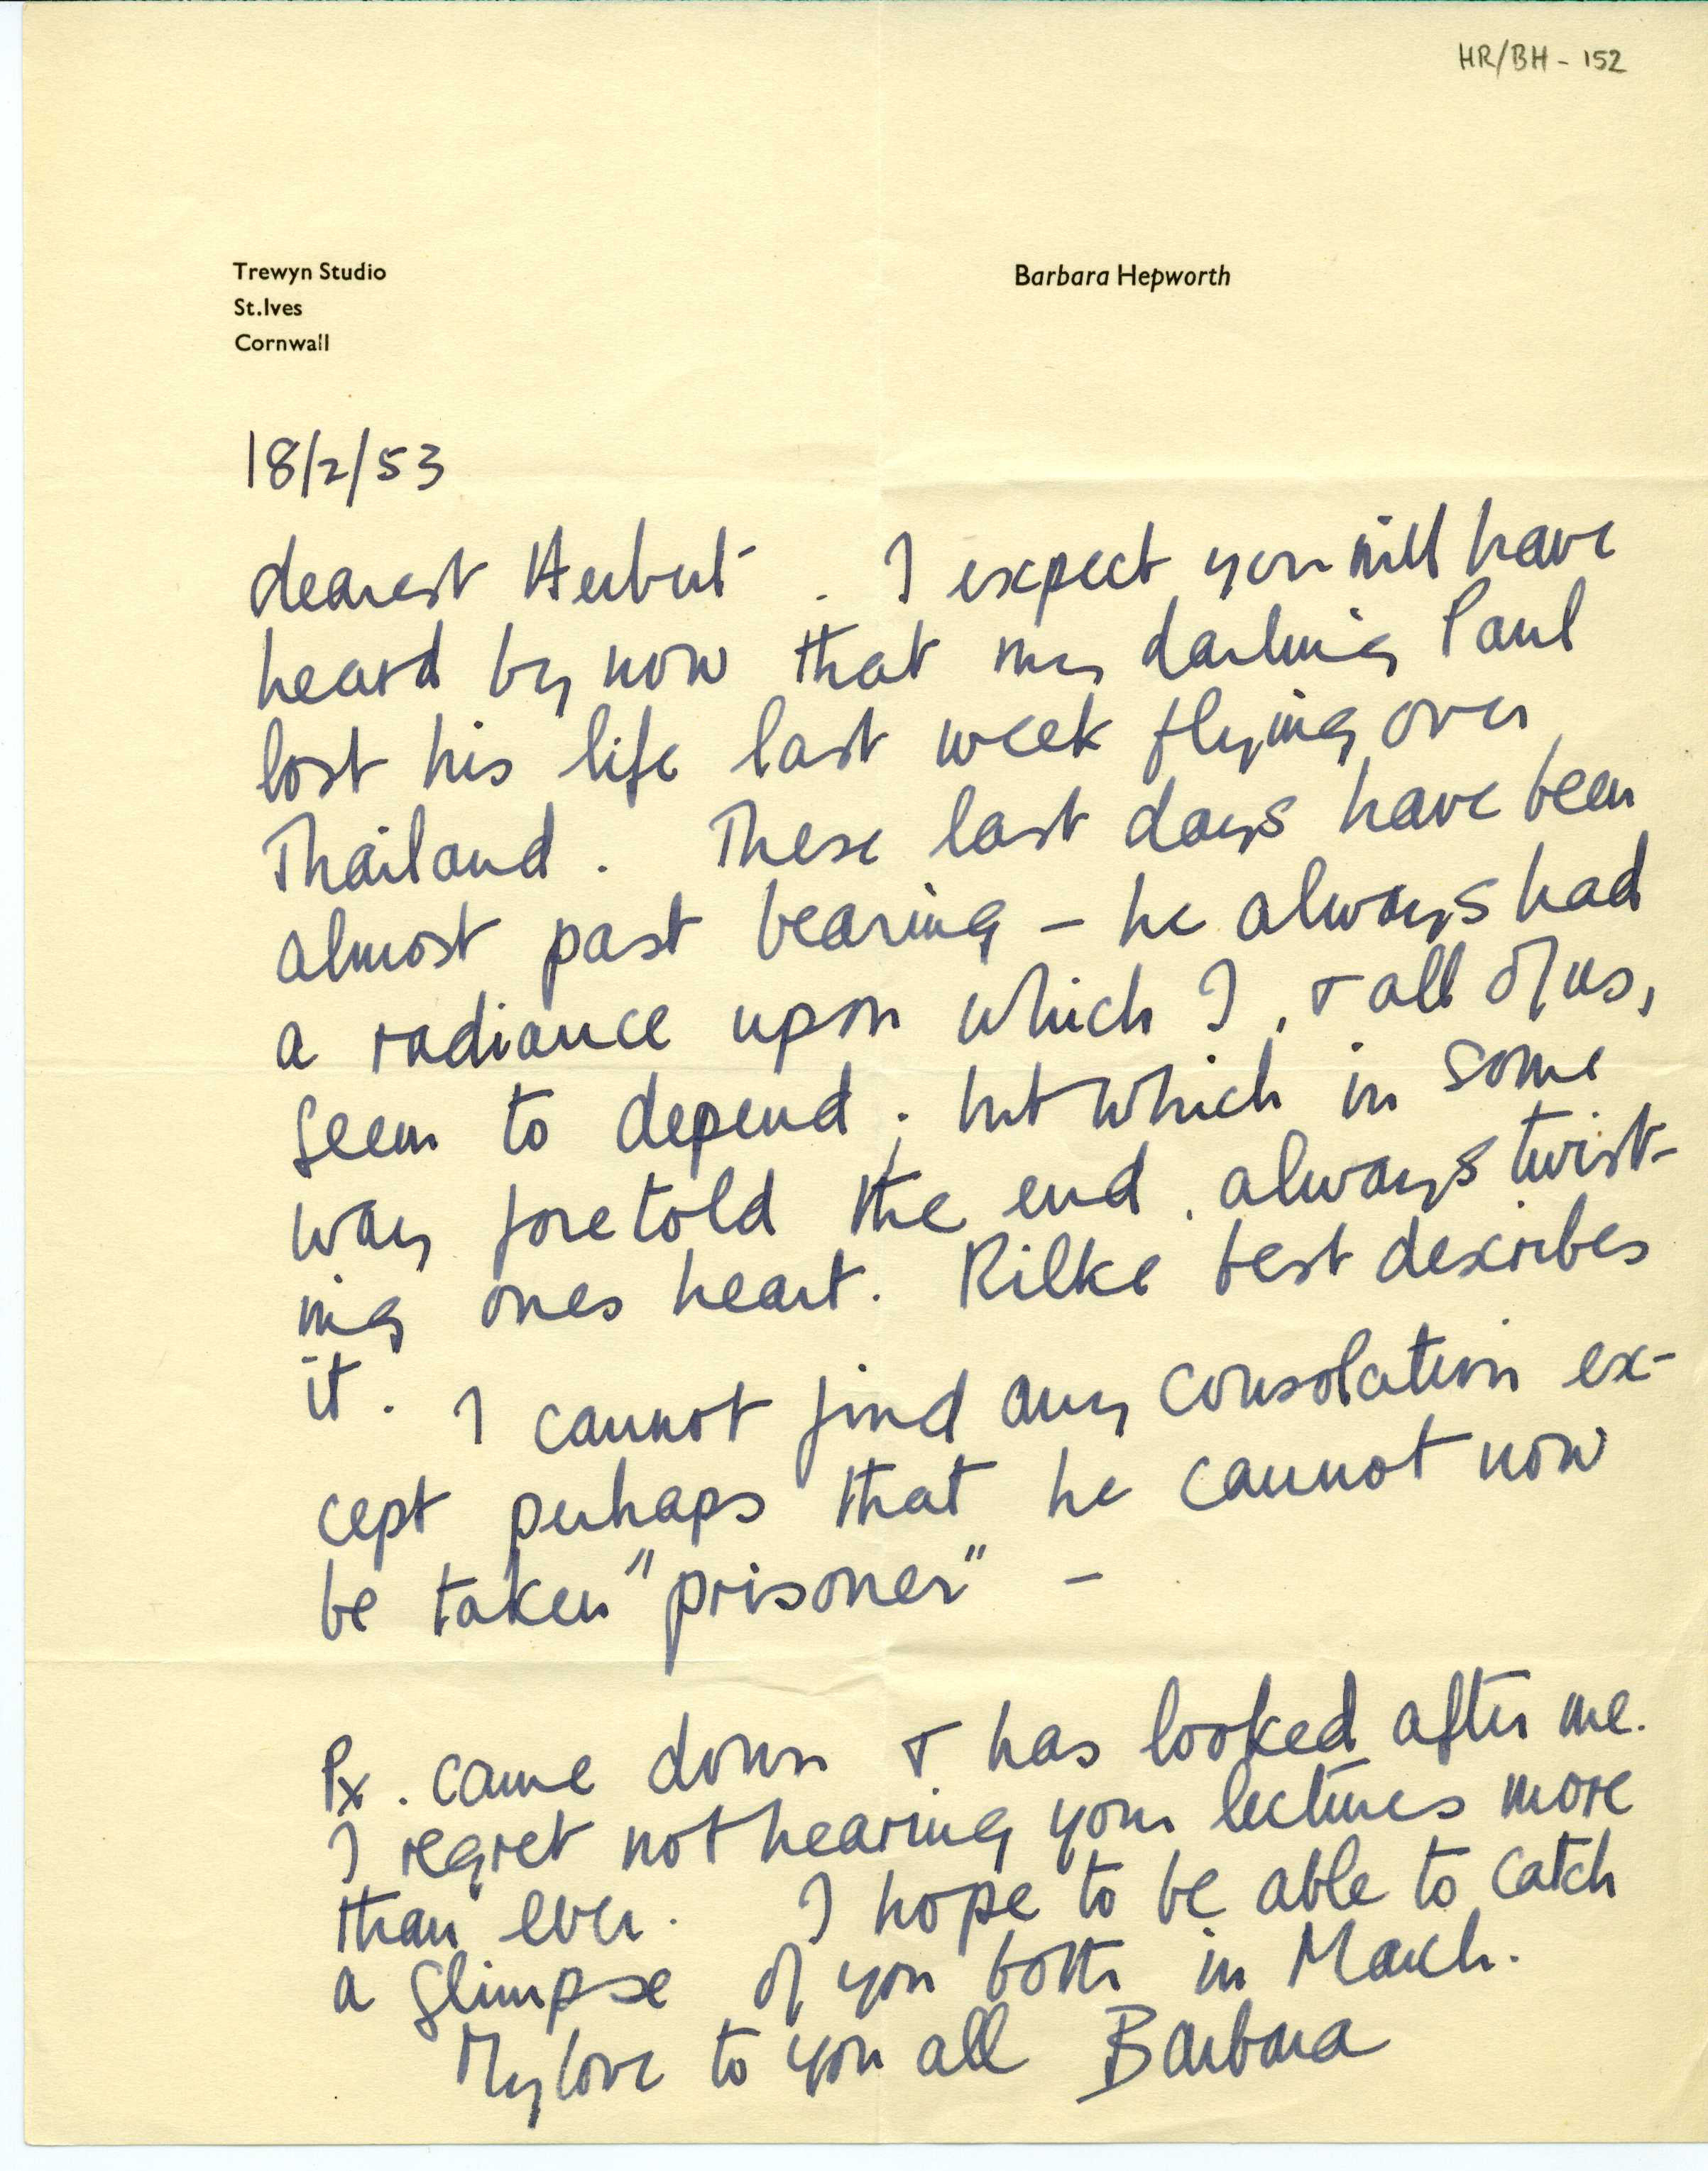 HR/BH - 152
Trewyn Studio
St.Ives
Cornwall
Barbara Hepworth
18/2/53
dearest Herbert . I expect you will have
heard by now that my darling Paul
lost his life last week flying over
Thailand . These last days have been
almost past bearing - he always had
a radiance upon which I, & all of us,
seem to depend ; but which in some
way foretold the end , always twist-
ing ones heart. Rilke best describes
it. I cannot find any consolation ex-
cept perhaps that he cannot now
be taken "prisoner" -
Px . came down & has looked after me.
I regret not hearing your lectures more
than ever. I hope to be able to catch
a glimpse of you both in March.
My love to you all Barbara